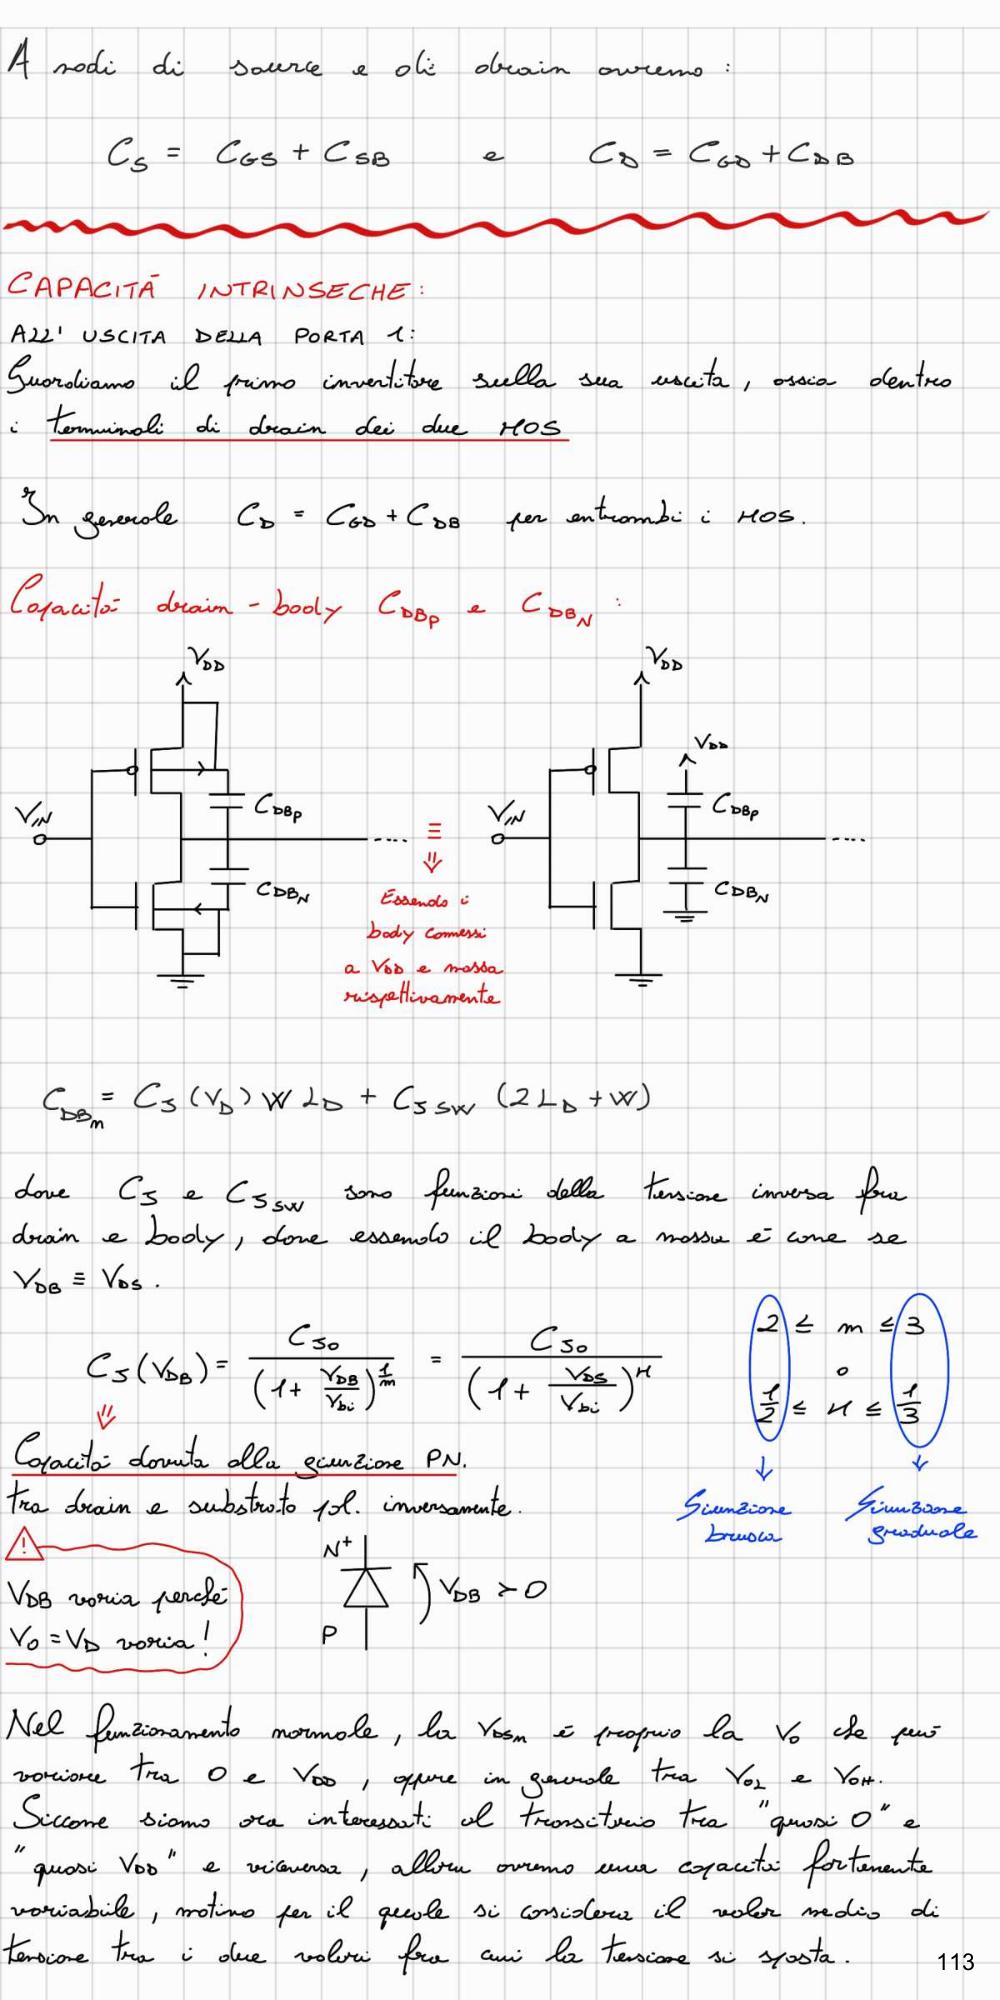 A nodi di source e di drain avremo :
C_S = C_GS + C_SB e C_D = C_GD + C_DB
CAPACITÀ INTRINSECHE:
ALL' USCITA DELLA PORTA 1:
Guardiamo il primo invertitore sulla sua uscita, ossia dentro
i terminali di drain dei due MOS
In generale C_D = C_GD + C_DB per entrambi i MOS.
Capacità drain - body C_DBp e C_DBN :
V_DD
V_IN
C_DBp
C_DBN
≡
⇓
Essendo i
body connessi
a V_DD e massa
rispettivamente
V_DD
V_DD
V_IN
C_DBp
C_DBN
C_DBn = C_J (V_D) W L_D + C_JSW (2L_D + W)
dove C_J e C_JSW sono funzioni della tensione inversa fra
drain e body, dove essendo il body a massa è come se
V_DB ≡ V_DS .
C_J(V_DB) = C_J0 / (1 + V_DB/V_bi)^(1/m) = C_J0 / (1 + V_DS/V_bi)^M
2 ≤ m ≤ 3
o
1/2 ≤ M ≤ 1/3
⇓
↓ ↓
Giunzione brusca
Giunzione graduale
Capacità dovuta alla giunzione PN.
tra drain e substrato pol. inversamente.
!
V_DB varia perché
V_O = V_D varia!
N+
P
V_DB > 0
Nel funzionamento normale, la V_DSn è proprio la V_O che può
variare tra 0 e V_DD , oppure in generale tra V_OL e V_OH.
Siccome siamo ora interessati al transitorio tra "quasi 0" e
"quasi V_DD" e viceversa, allora avremo una capacità fortemente
variabile, motivo per il quale si considera il valor medio di
tensione tra i due valori fra cui la tensione si sposta.
113